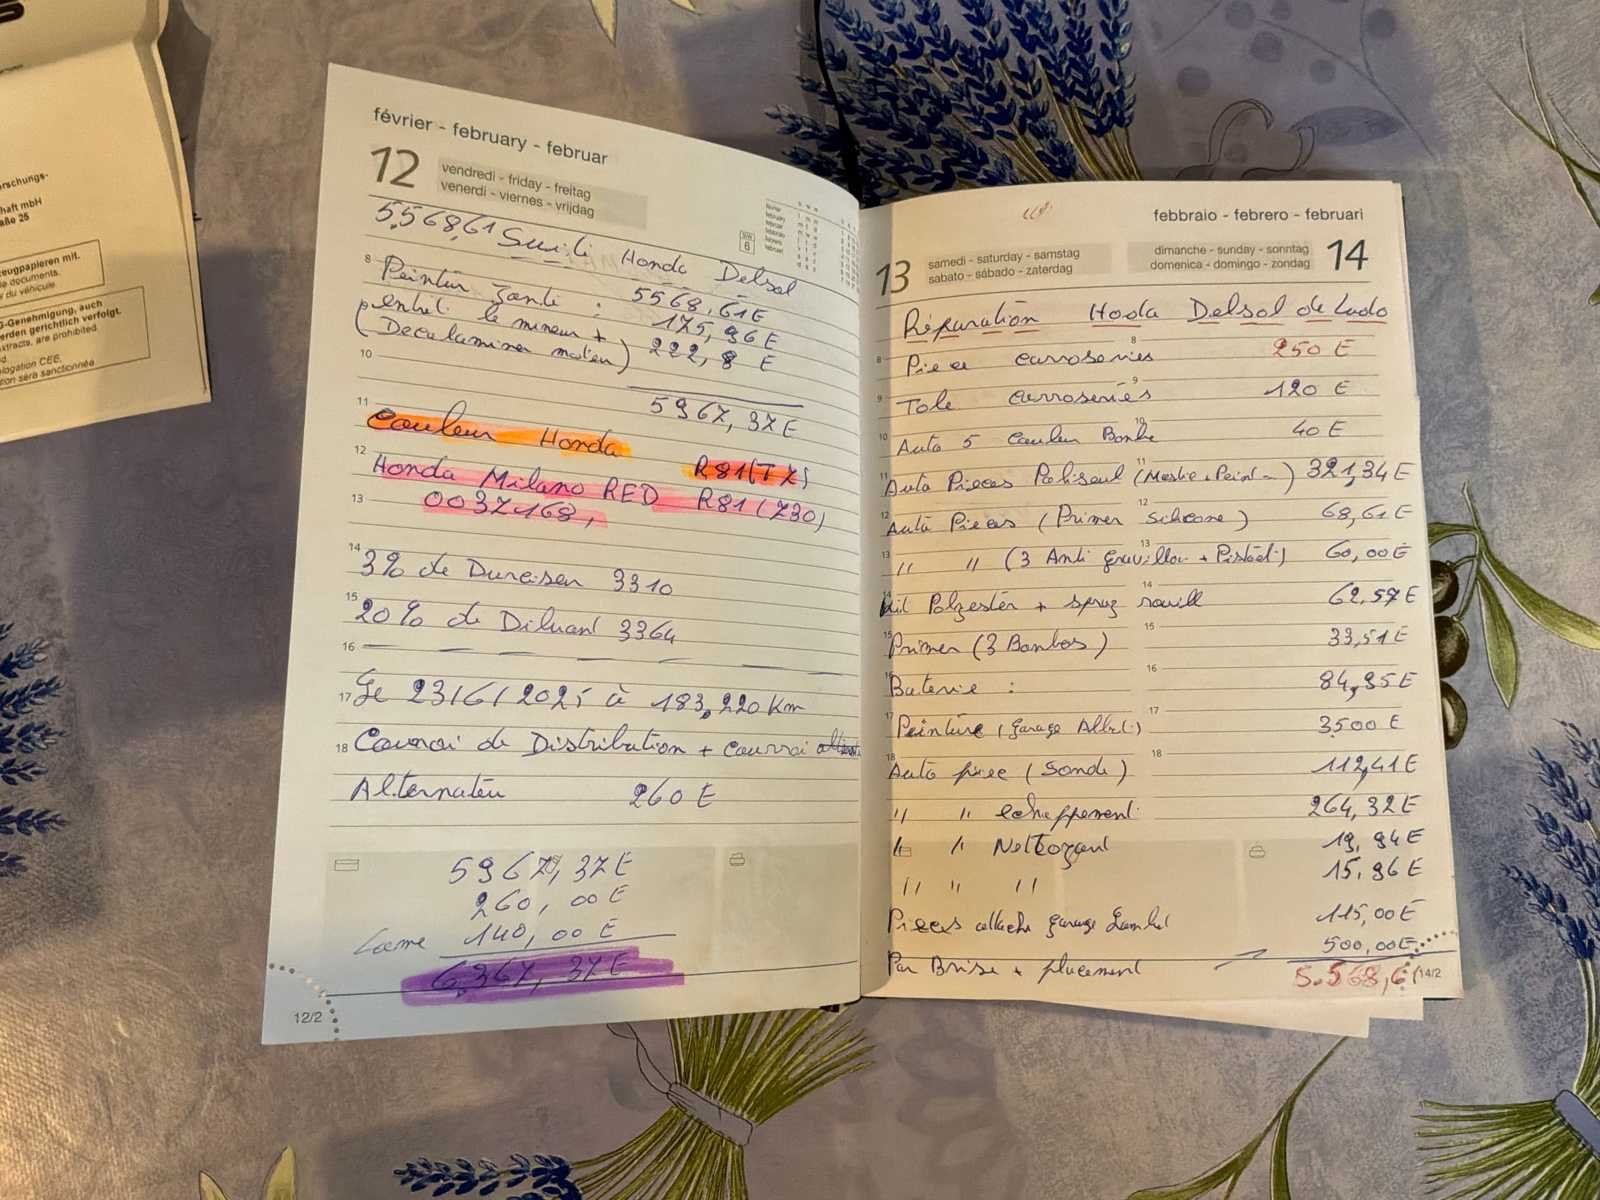 erschungs-
haft mbH
aße 25
zeugpapieren mit.
le documents.
y du véhicule.
G-Genehmigung, auch
erden gerichtlich verfolgt.
xtracts, are prohibited.
d.
ologation CEE,
tion sera sanctionnée
février - february - februar
12
vendredi - friday - freitag
venerdi - viernes - vrijdag
6
5,568,61 Honda Delsol
8
Peintur Janti : 5568,61E
entret. le mineur + 175,96E
(Decalaminer moteur) 222,8 E
10
5967,37E
11
Couleur Honda R81(TX)
12
Honda Milano RED R81 (Z30)
13
0037168,
14
3% de Durciseur 3310
15
20% de Diluant 3364
16
17 Le 23/6/2025 à 183,220 Km
18 Courroi de Distribution + Courroi
Alternateur 260 E
5967,37E
260,00E
140,00E
6,367,37E
12/2
febbraio - febrero - februari
13
samedi - saturday - samstag
sabato - sábado - zaterdag
dimanche - sunday - sonntag
domenica - domingo - zondag
14
Réparation Honda Delsol de Ludo
Piece carroseries 250 E
Tole carroseries 120 E
Auto 5 Couleur Bombe 40 E
Auto Pieces Poliseul (Mastic + Peint) 321,34E
Auto Pieces (Primer Silicone) 68,61E
" " (3 Anti gravillon + Pistolet) 60,00E
Kit Polyester + spray rouill 62,57E
Primer (3 Bombes) 33,51E
Baterie : 84,95E
Peinture (Garage) 3500 E
Auto piece (Sonde) 112,41E
" " echappement 264,32E
" " Nettoyant 19,94E
" " " 15,96E
Pieces attache garage 115,00E
500,00E
Par Brise + placement 5.568,61
14/2